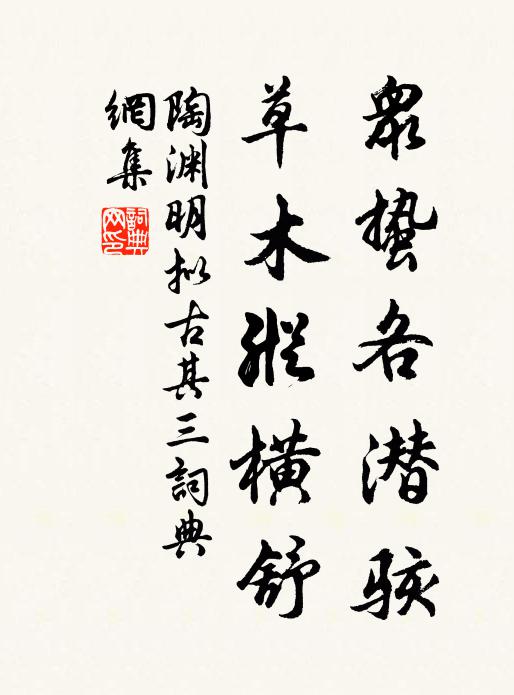 眾蟄各潛駭
草木縱橫舒
陶渊明拟古其三詞典
網集
詞典網印